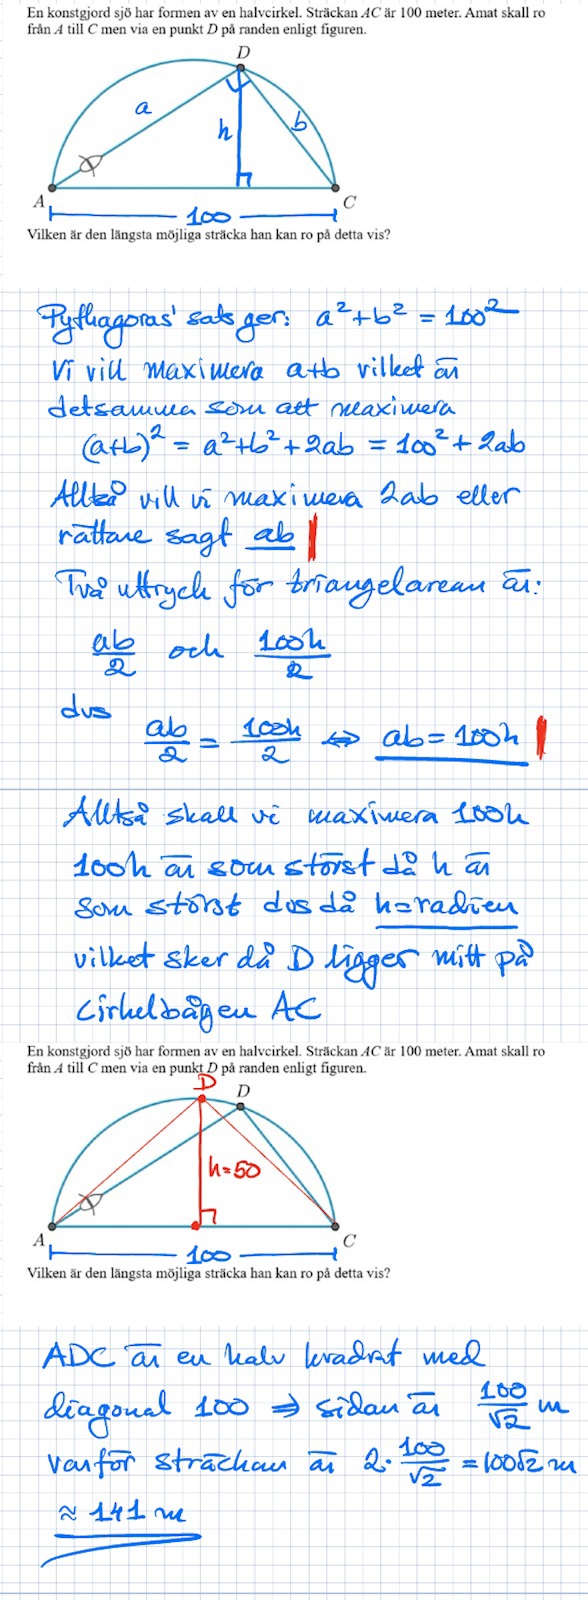 En konstgjord sjö har formen av en halvcirkel. Sträckan AC är 100 meter. Amat skall ro
från A till C men via en punkt D på randen enligt figuren.
D
a
h
b
A
C
100
Vilken är den längsta möjliga sträcka han kan ro på detta vis?
Pythagoras' sats ger: a² + b² = 100²
Vi vill maximera a+b vilket är
detsamma som att maximera
(a+b)² = a²+b²+2ab = 100² + 2ab
Alltså vill vi maximera 2ab eller
rättare sagt ab
Två uttryck för triangelarean är:
ab/2 och 100h/2
dvs
ab/2 = 100h/2 ⇔ ab = 100h
Alltså skall vi maximera 100h
100h är som störst då h är
som störst dvs då h=radien
vilket sker då D ligger mitt på
cirkelbågen AC
En konstgjord sjö har formen av en halvcirkel. Sträckan AC är 100 meter. Amat skall ro
från A till C men via en punkt D på randen enligt figuren.
D
D
h=50
A
C
100
Vilken är den längsta möjliga sträcka han kan ro på detta vis?
ADC är en halv kvadrat med
diagonal 100 ⇒ sidan är 100/√2 m
varför sträckan är 2·100/√2 = 100√2 m
≈ 141 m